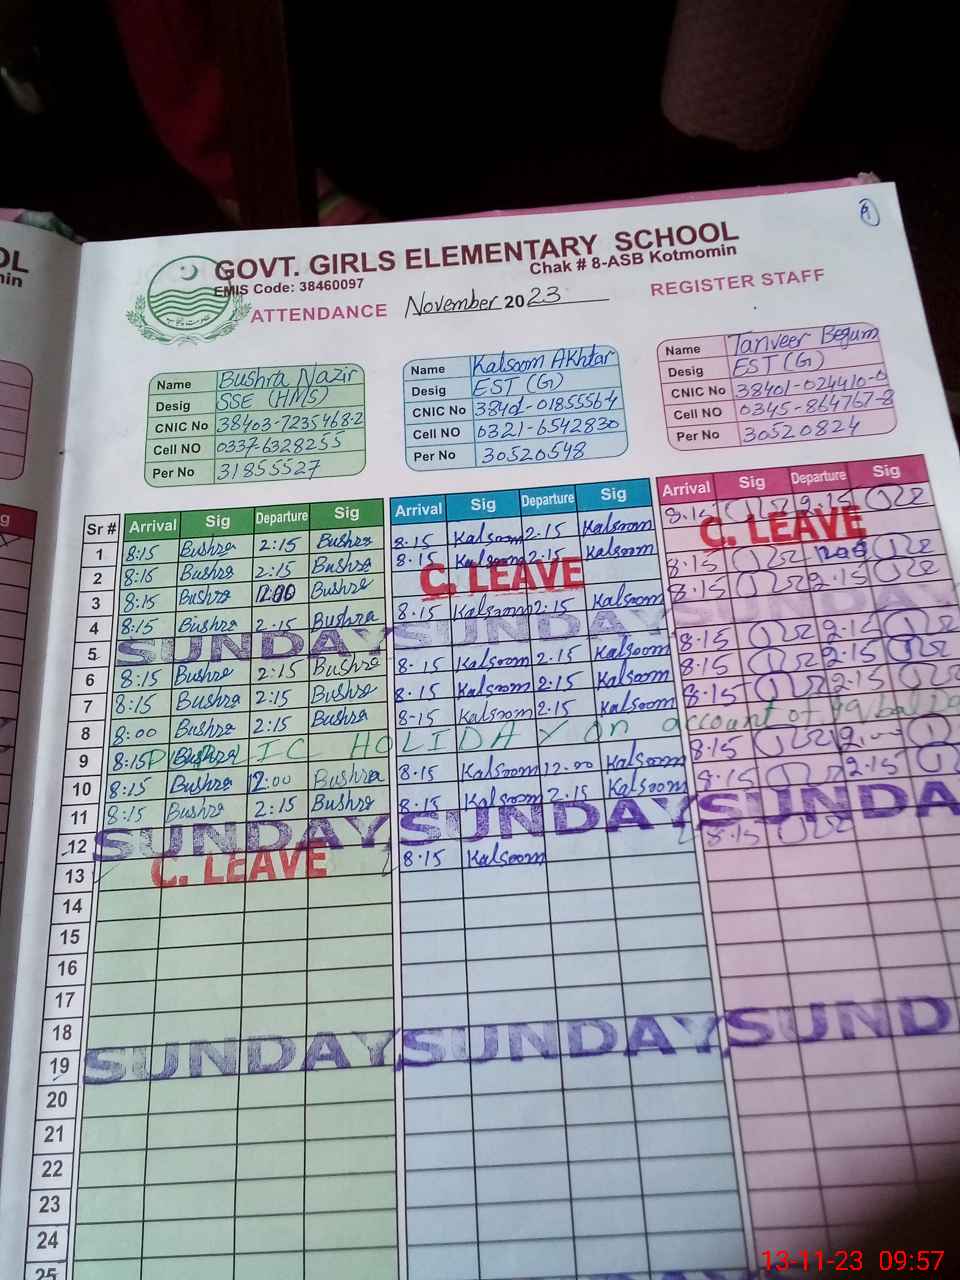 OL
min
GOVT. GIRLS ELEMENTARY SCHOOL
Chak # 8-ASB Kotmomin
EMIS Code: 38460097
ATTENDANCE November 2023 REGISTER STAFF
Name Bushra Nazir
Desig SSE (HMs)
CNIC No 38403-7235468-2
Cell NO 0337-6328255
Per No 31855527
Name Kalsoom Akhtar
Desig EST (G)
CNIC No
Cell NO 0321-6542830
Per No 30520548
Name Tanveer Begum
Desig EST (G)
CNIC No 38401-024410-0
Cell NO 0345-864767-8
Per No 30520824
g
Sr # Arrival Sig Departure Sig Arrival Sig Departure Sig Arrival Sig Departure Sig
1 8:15 Bushra 2:15 Bushra 8.15 Kalsoom 2.15 Kalsoom 8.15 2.15
2 8:15 Bushra 2:15 Bushra 8.15 Kalsoom 2.15 Kalsoom C. LEAVE
3 8:15 Bushra Bushra C. LEAVE 8.15
4 8:15 Bushra 2:15 Bushra 8.15 Kalsoom 2.15 Kalsoom 8.15 2.15
5 SUNDAY SUNDAY SUNDAY
6 8:15 Bushra 2:15 Bushra 8.15 Kalsoom 2.15 Kalsoom 8.15 2.15
7 8:15 Bushra 2:15 Bushra 8.15 Kalsoom 2.15 Kalsoom 8.15 2.15
8 8:00 Bushra 2:15 Bushra 8-15 Kalsoom 2.15 Kalsoom 8.15 2.15
9 8:15 Bushra PUBLIC HOLIDAY on account of Iqbal Da
10 8:15 Bushra 12:00 Bushra 8.15 Kalsoom 12.00 Kalsoom 8.15
11 8:15 Bushra 2:15 Bushra 8.15 Kalsoom 2.15 Kalsoom 8.15 2.15
12 SUNDAY SUNDAY SUNDA
13 C. LEAVE 8.15 Kalsoom 8.15
14
15
16
17
18
19 SUNDAY SUNDAY SUND
20
21
22
23
24
25
13-11-23 09:57